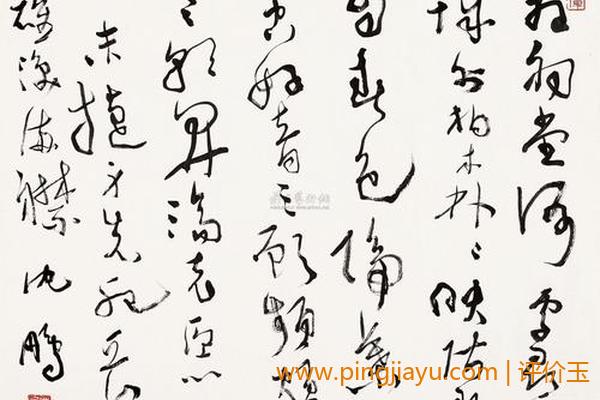 相祠堂何處
城外柏森々映階
自春色隔葉
空好音三顾頻煩
朝開濟老臣心
未捷身先死長
雄淚滿襟 沈鵬
www.pingjiayu.com | 评价玉